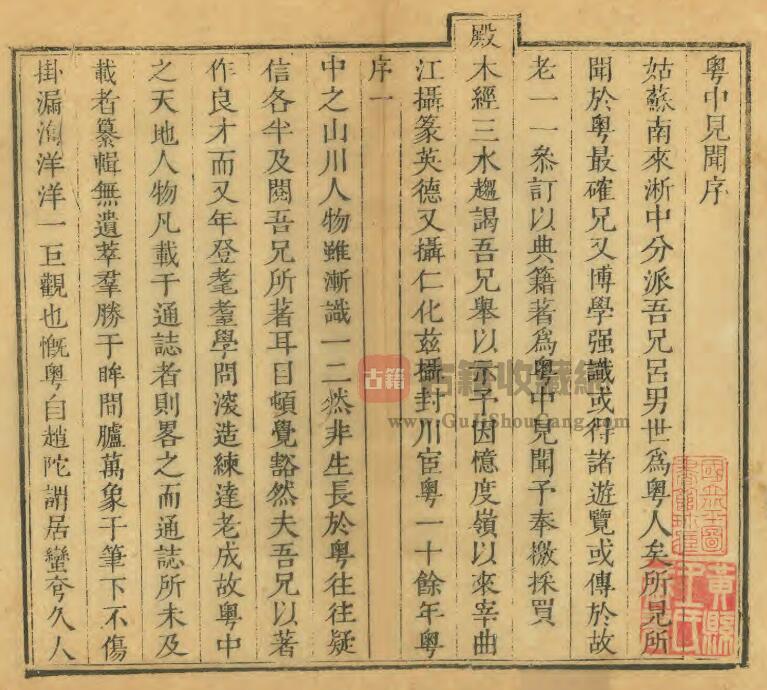 粤中見聞序
姑蘇南來浙中分派吾兄呂男世爲粤人矣所見所
聞於粤最確兄又博學强識或得諸遊覽或傳於故
老一一叅訂以典籍著爲粤中見聞予奉檄採買
殿木經三水趨謁吾兄舉以示予因憶度嶺以來宰曲
江攝篆英德又攝仁化兹攝封川宦粤一十餘年粤
序一
中之山川人物雖漸識一二然非生長於粤往往疑
信各半及閱吾兄所著耳目頓覺豁然夫吾兄以著
作良才而又年登耄耋學問深造練達老成故粤中
之天地人物凡載于通誌者則畧之而通誌所未及
載者纂輯無遺萃羣勝于眸間臚萬象于筆下不傷
掛漏洵洋洋一巨觀也慨粤自趙陀謂居蠻夸久人
古籍
古籍收藏
www.GuJiShouCang.com